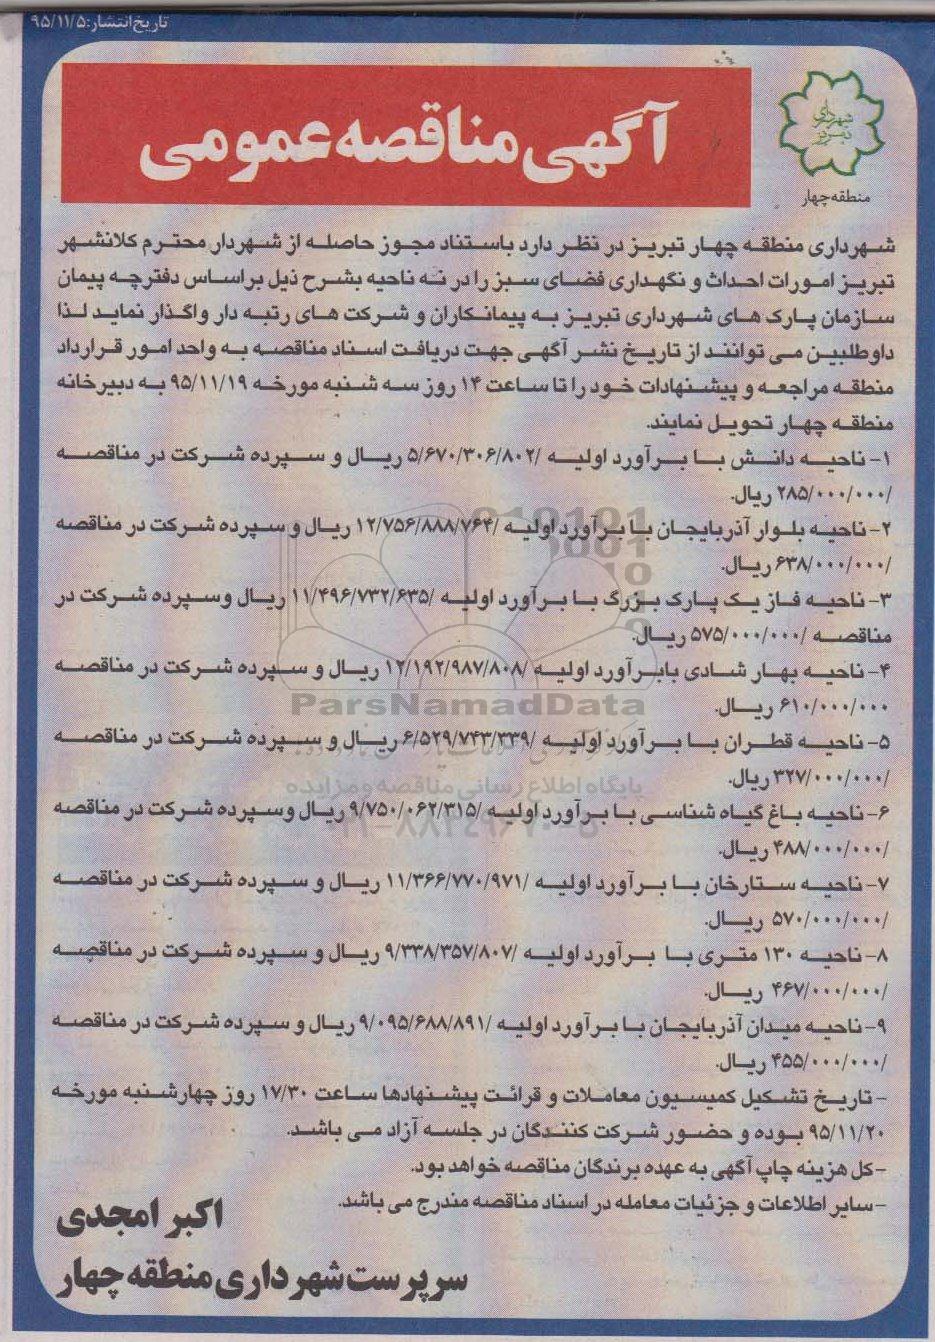 تاریخ انتشار: ۹۵/۱۱/۵
شهرداری
تبریز
منطقه چهار
آگهی مناقصه عمومی
شهرداری منطقه چهار تبریز در نظر دارد باستناد مجوز حاصله از شهردار محترم کلانشهر
تبریز امورات احداث و نگهداری فضای سبز را در نه ناحیه بشرح ذیل براساس دفترچه پیمان
سازمان پارک های شهرداری تبریز به پیمانکاران و شرکت های رتبه دار واگذار نماید لذا
داوطلبین می توانند از تاریخ نشر آگهی جهت دریافت اسناد مناقصه به واحد امور قرارداد
منطقه مراجعه و پیشنهادات خود را تا ساعت ۱۴ روز سه شنبه مورخه ۹۵/۱۱/۱۹ به دبیرخانه
منطقه چهار تحویل نمایند.
۱- ناحیه دانش با برآورد اولیه /۵/۶۷۰/۳۰۶/۸۰۲ ریال و سپرده شرکت در مناقصه
/۲۸۵/۰۰۰/۰۰۰ ریال.
۲- ناحیه بلوار آذربایجان با برآورد اولیه /۱۲/۷۵۶/۸۸۸/۷۶۴ ریال و سپرده شرکت در مناقصه
/۶۳۸/۰۰۰/۰۰۰ ریال.
۳- ناحیه فاز یک پارک بزرگ با برآورد اولیه /۱۱/۴۹۶/۷۳۲/۶۳۵ ریال وسپرده شرکت در
مناقصه /۵۷۵/۰۰۰/۰۰۰ ریال.
۴- ناحیه بهار شادی بابرآورد اولیه /۱۲/۱۹۲/۹۸۷/۸۰۸ ریال و سپرده شرکت در مناقصه
۶۱۰/۰۰۰/۰۰۰ ریال.
۵- ناحیه قطران با برآورد اولیه /۶/۵۲۹/۷۴۳/۳۳۹ ریال و سپرده شرکت در مناقصه
/۳۲۷/۰۰۰/۰۰۰ ریال.
۶- ناحیه باغ گیاه شناسی با برآورد اولیه /۹/۷۵۰/۰۶۲/۳۱۵ ریال وسپرده شرکت در مناقصه
/۴۸۸/۰۰۰/۰۰۰ ریال.
۷- ناحیه ستارخان با برآورد اولیه /۱۱/۳۶۶/۷۷۰/۹۷۱ ریال و سپرده شرکت در مناقصه
/۵۷۰/۰۰۰/۰۰۰ ریال.
۸- ناحیه ۱۳۰ متری با برآورد اولیه /۹/۳۳۸/۳۵۷/۸۰۷ ریال و سپرده شرکت در مناقصه
/۴۶۷/۰۰۰/۰۰۰ ریال.
۹- ناحیه میدان آذربایجان با برآورد اولیه /۹/۰۹۵/۶۸۸/۸۹۱ ریال و سپرده شرکت در مناقصه
/۴۵۵/۰۰۰/۰۰۰ ریال.
- تاریخ تشکیل کمیسیون معاملات و قرائت پیشنهادها ساعت ۱۷/۳۰ روز چهارشنبه مورخه
۹۵/۱۱/۲۰ بوده و حضور شرکت کنندگان در جلسه آزاد می باشد.
-کل هزینه چاپ آگهی به عهده برندگان مناقصه خواهد بود.
-سایر اطلاعات و جزئیات معامله در اسناد مناقصه مندرج می باشد.
اکبر امجدی
سرپرست شهرداری منطقه چهار
ParsNamadData
پایگاه اطلاع رسانی مناقصه و مزایده
۰۲۱-۸۸۳۴۹۶۷۰-۵